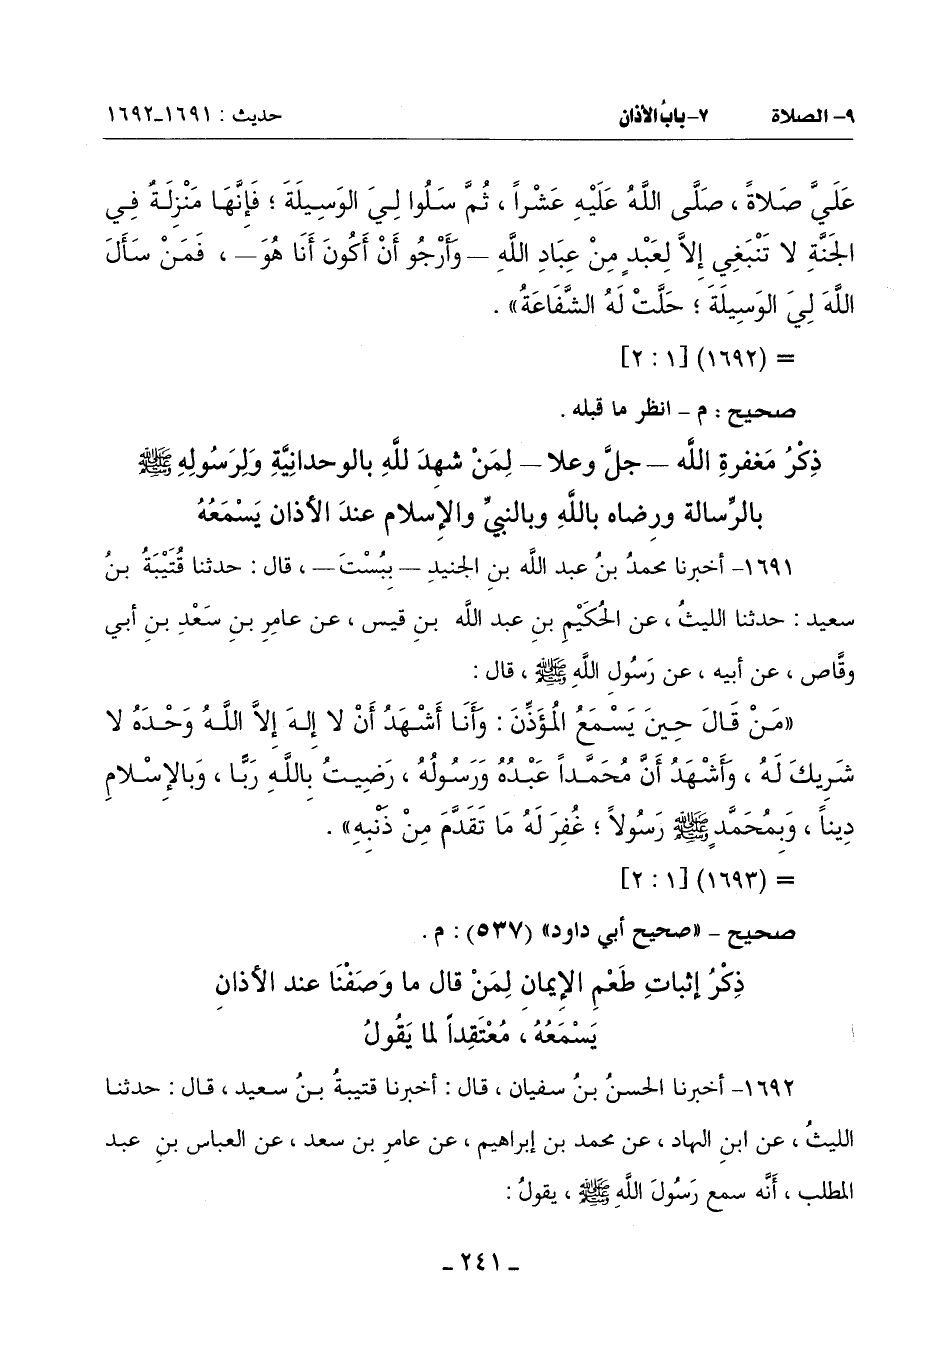 ٩- الصلاة ٧- بابُ الأذان حديث : ١٦٩١-١٦٩٢
عَلَيَّ صَلاةً ، صَلَّى اللَّهُ عَلَيْهِ عَشْراً ، ثُمَّ سَلُوا لِيَ الوَسِيلَةَ ؛ فَإِنَّهَا مَنْزِلَةٌ فِي
الجَنَّةِ لا تَنْبَغِي إِلاَّ لِعَبْدٍ مِنْ عِبَادِ اللَّهِ —وَأَرْجُو أَنْ أَكُونَ أَنَا هُوَ— ، فَمَنْ سَأَلَ
اللَّهَ لِيَ الوَسِيلَةَ ؛ حَلَّتْ لَهُ الشَّفَاعَةُ» .
= (١٦٩٢) [١ : ٢]
صحيح : م - انظر ما قبله .
ذِكْرُ مَغفرةِ اللَّه —جلَّ وعلا— لِمَنْ شهِدَ للَّهِ بالوحدانِيَّةِ ولِرَسُولِهِ ﷺ
بالرِّسالة ورضاه باللَّهِ وبالنبيِّ والإسلام عندَ الأذان يَسْمَعُهُ
١٦٩١- أخبرنا محمدُ بنُ عبد اللَّه بنِ الجنيدِ —بِبُسْتَ— ، قال : حدثنا قُتَيْبَةُ بنُ
سعيد : حدثنا الليثُ ، عن الحُكَيْمِ بنِ عبد اللَّه بنِ قيس ، عن عامرِ بنِ سَعْدِ بنِ أبي
وقَّاص ، عن أبيه ، عن رَسُول اللَّهِ ﷺ ، قال :
«مَنْ قَالَ حِينَ يَسْمَعُ المُؤَذِّنَ : وَأَنَا أَشْهَدُ أَنْ لا إلهَ إلاَّ اللَّهُ وَحْدَهُ لا
شَرِيكَ لَهُ ، وَأَشْهَدُ أَنَّ مُحَمَّداً عَبْدُهُ وَرَسُولُهُ ، رَضِيتُ بِاللَّهِ رَبًّا ، وَبِالإِسْلامِ
دِيناً ، وَبِمُحَمَّدٍ ﷺ رَسُولاً ؛ غُفِرَ لَهُ مَا تَقَدَّمَ مِنْ ذَنْبِهِ» .
= (١٦٩٣) [١ : ٢]
صحيح - «صحيح أبي داود» (٥٣٧) : م .
ذِكْرُ إثباتِ طَعْمِ الإيمانِ لِمَنْ قال ما وَصَفْنَا عند الأذانِ
يَسْمَعُهُ ، مُعْتَقِداً لما يَقُولُ
١٦٩٢- أخبرنا الحسنُ بنُ سفيان ، قال : أخبرنا قتيبةُ بنُ سعيد ، قال : حدثنا
الليثُ ، عن ابنِ الهاد ، عن محمد بنِ إبراهيم ، عن عامرِ بن سعد ، عن العباس بنِ عبد
المطلب ، أَنَّه سمع رَسُولَ اللَّهِ ﷺ ، يقولُ :
- ٢٤١ -